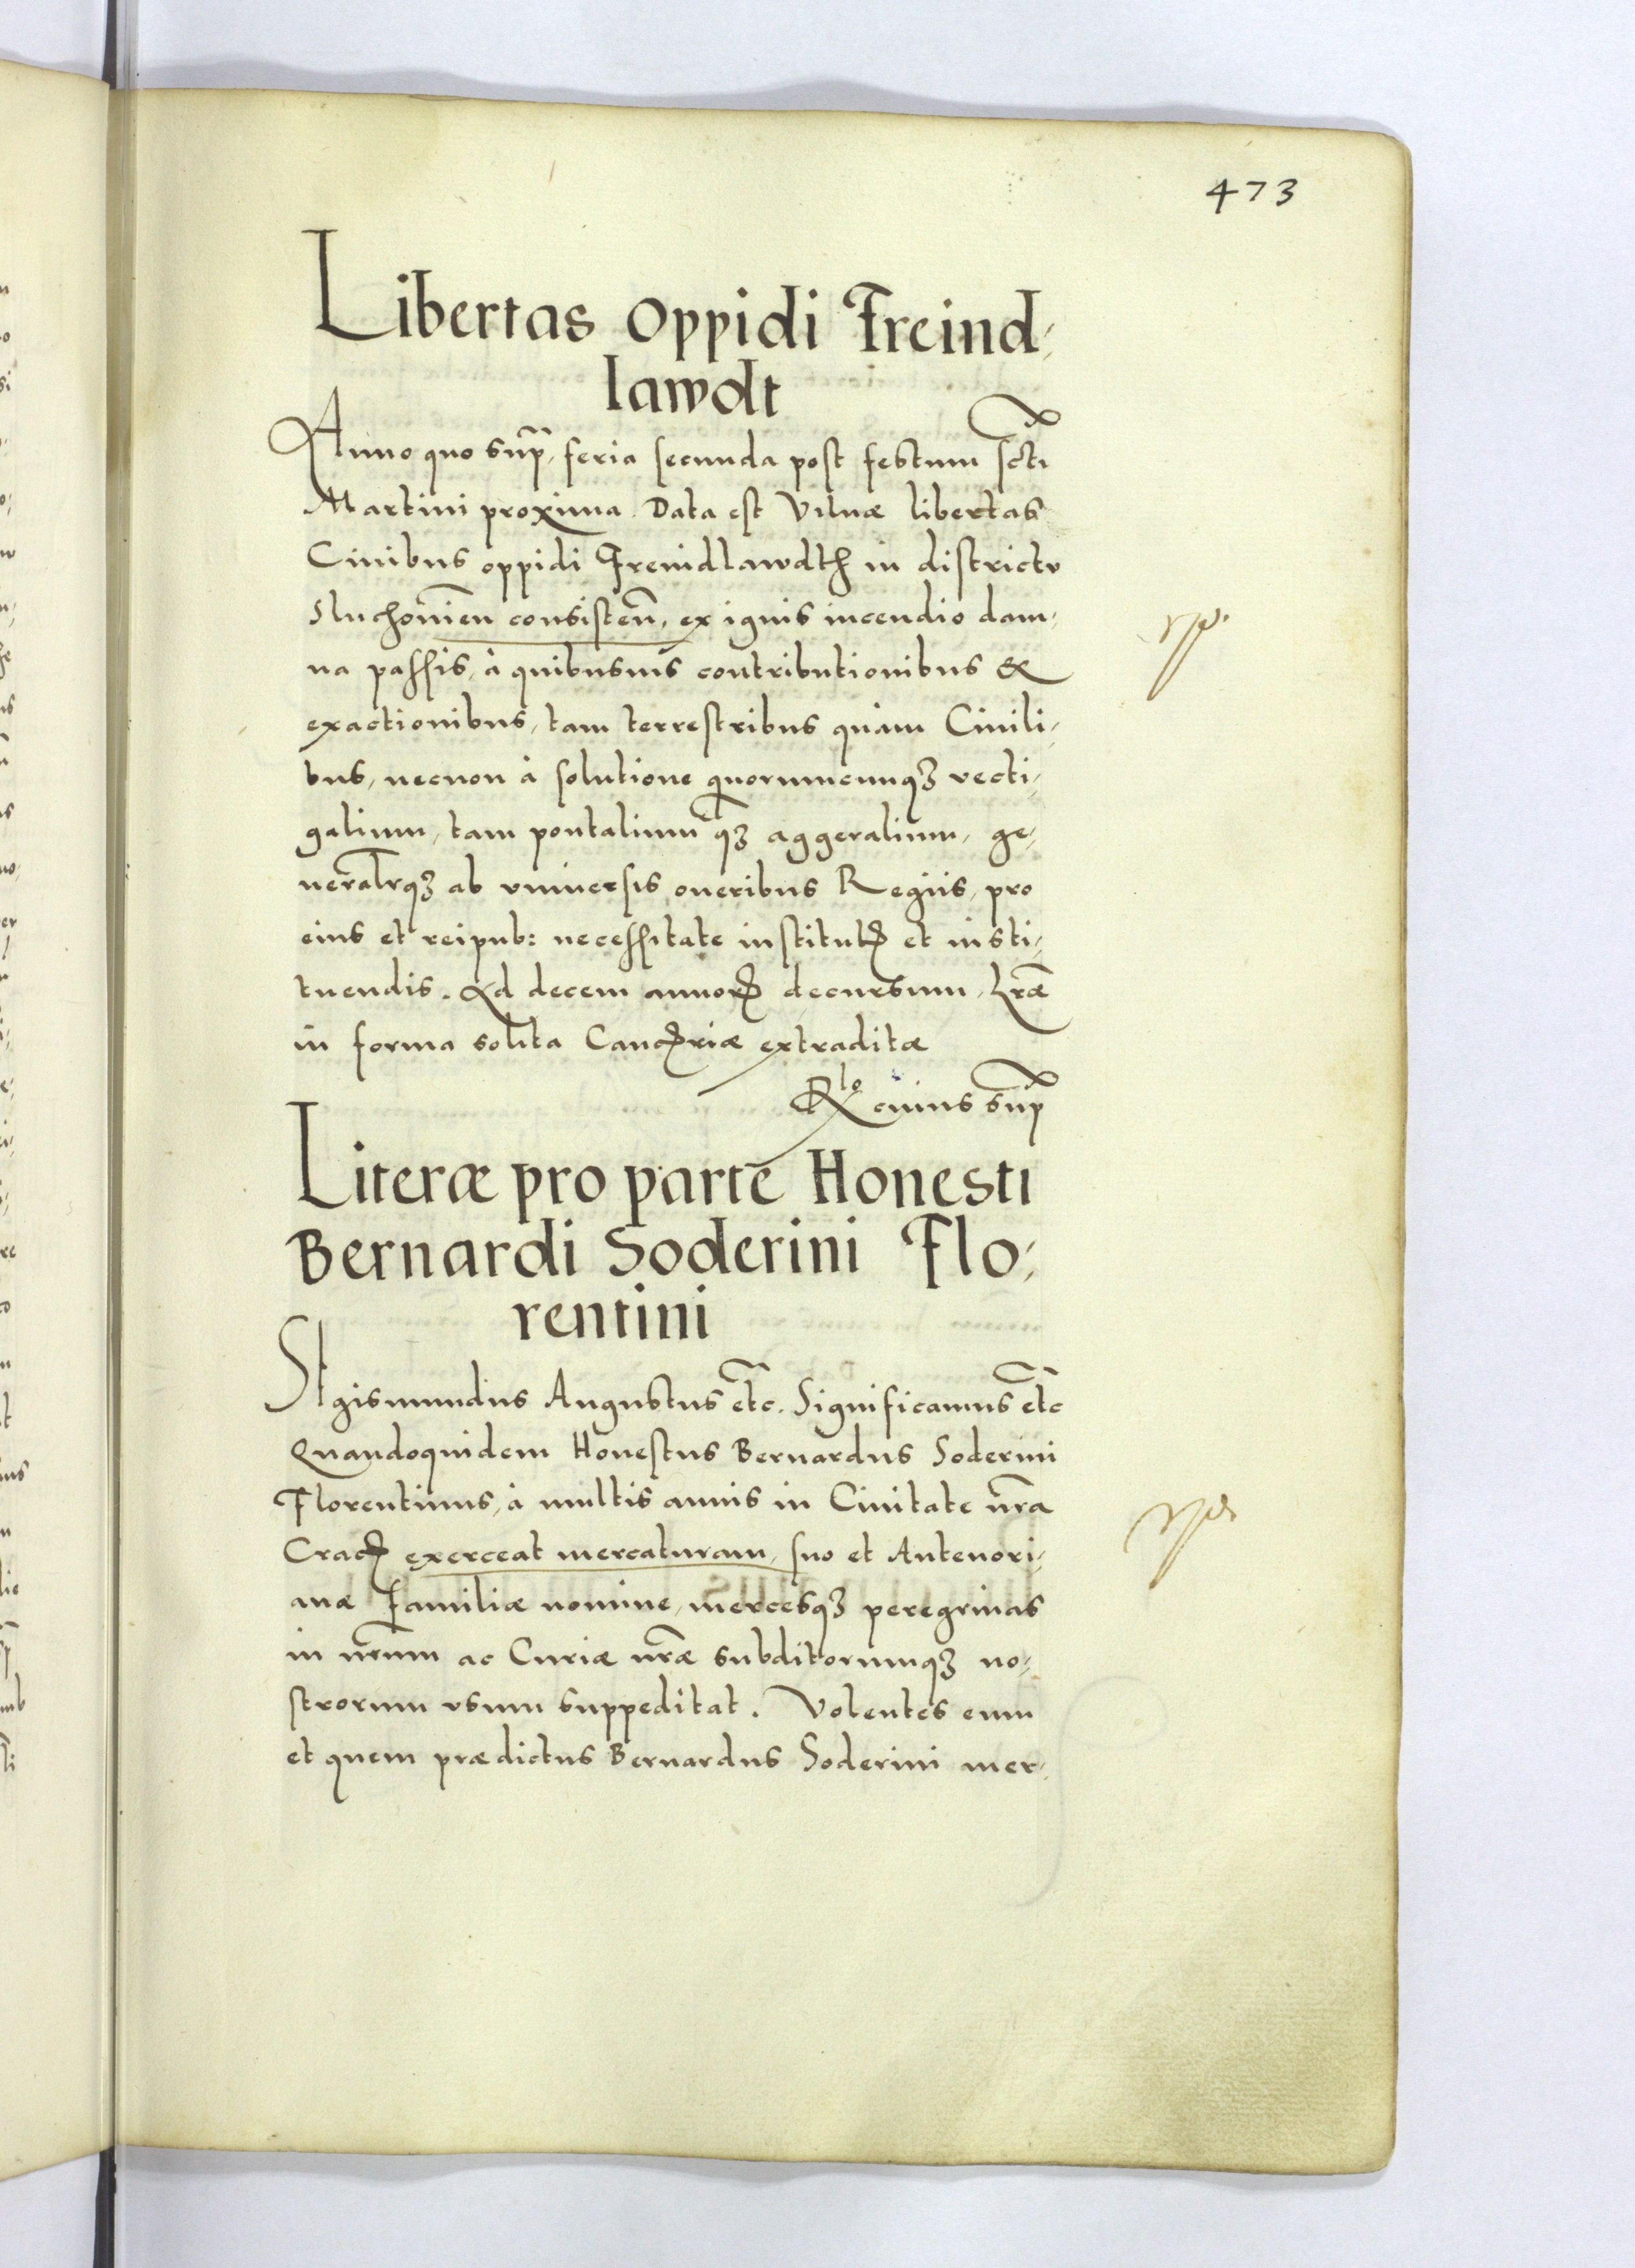 473
Libertas Oppidi Freind,
lawdt
Anno quo sup̃, feria secunda post festum scti
Martini proxima. Data est Vilnæ libertas
Ciuibus oppidi Freindlawdth in districtu
Sluchouieñ consisteñ, ex ignis incendio dam,
na passis, à quibusuis contributionibus &
exactionibus, tam terrestribus quàm Ciuili,
bus, necnon à solutione quorumcumqꝫ vecti,
galium, tam pontalium qꝫ aggeralium, ge,
neralr̃qꝫ ab vniuersis oneribus Regiis, pro
eius et reipub: necessitate institutꝭ et insti,
tuendis. Ad decem annorꝝ decursum, Lræ̃
in forma solita Cancꝭriæ extraditæ
Rlo cuius sup̃
Literæ pro parte Honesti
Bernardi Soderini Flo,
rentini
Sigismundus Augustus etc̃. Significamus etc̃
Quandoquidem Honestus Bernardus Soderini
Florentinus, à multis annis in Ciuitate nr̃a
Cracꝭ exerceat mercaturam, suo et Antenori,
anæ familiæ nomine, mercesqꝫ peregrinas
in nr̃um ac Curiæ nr̃æ subditorumqꝫ no,
strorum vsum suppeditat. Volentes eum
et quem prædictus Bernardus Soderini mer,